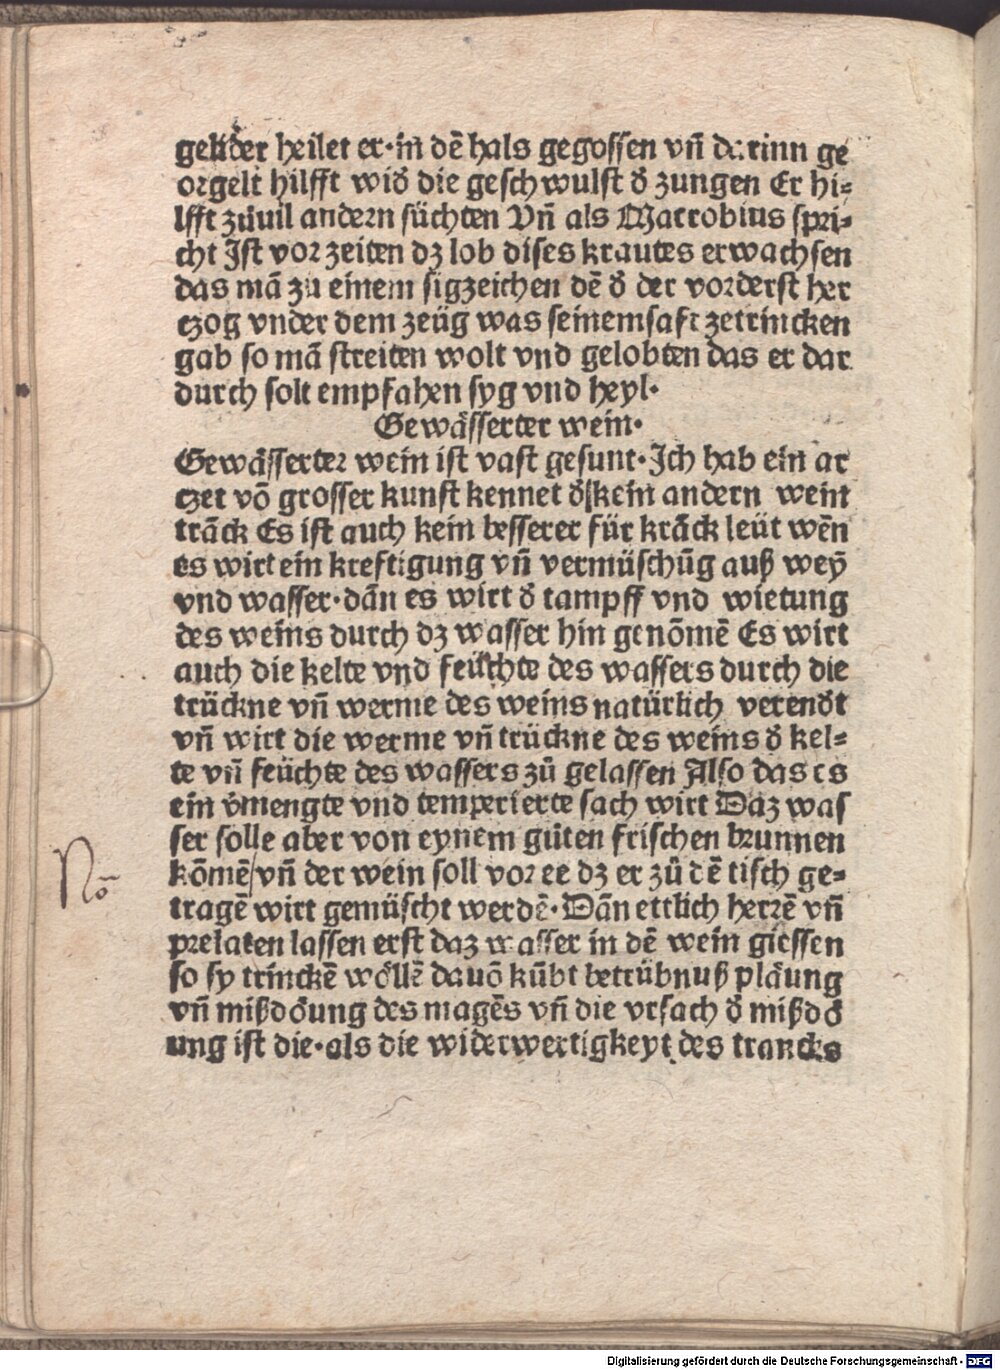 gelider heilet er·in dē hals gegossen vñ darinn ge
orgelt hilfft wiď die geschwulst ď zungen Er hi=
lfft zůuil andern süchten Vñ als Macrobius spri=
cht Ist vor zeiten dz lob dises krautes erwachsen
das mā zu einem sigzeichen dē ď der vorderst her
czog vnder dem zeüg was seinem saft zetrincken
gab so mā streiten wolt vnd gelobten das er dar
durch solt empfahen syg vnd heyl·
Gewässerter wein·
Gewässerter wein ist vast gesunt·Ich hab ein ar
czet vō grosser kunst kennet ď kein andern wein
trāck Es ist auch kein besserer für krāck leüt wēn
es wirt ein kreftigung vñ vermüschūg auß weȳ
vnd wasser·dān es wirt ď tampff vnd wietung
des weins durch dz wasser hin genōmē Es wirt
auch die kelte vnd feüchte des wassers durch die
trückne vñ werme des weins natürlich verenďt
vñ wirt die werme vñ trückne des weins ď kel=
te vñ feüchte des wassers zů gelassen Also das es
ein v̓mengte vnd temperierte sach wirt Daz was
ser solle aber von eynem gůten frischen brunnen
kōmē/vñ der wein soll vor ee dz er zů dē tisch ge=
tragē wirt gemüscht werdē·Dān ettlich herrē vñ
prelaten lassen erst daz wasser in dē wein giessen
so sy trinckē wöllē dauō kūbt betrübnuß pläung
vñ mißdöung des magēs vñ die vrsach ď mißdö
ung ist die·als die widerwertigkeyt des trancks
No
Digitalisierung gefördert durch die Deutsche Forschungsgemeinschaft - DFG